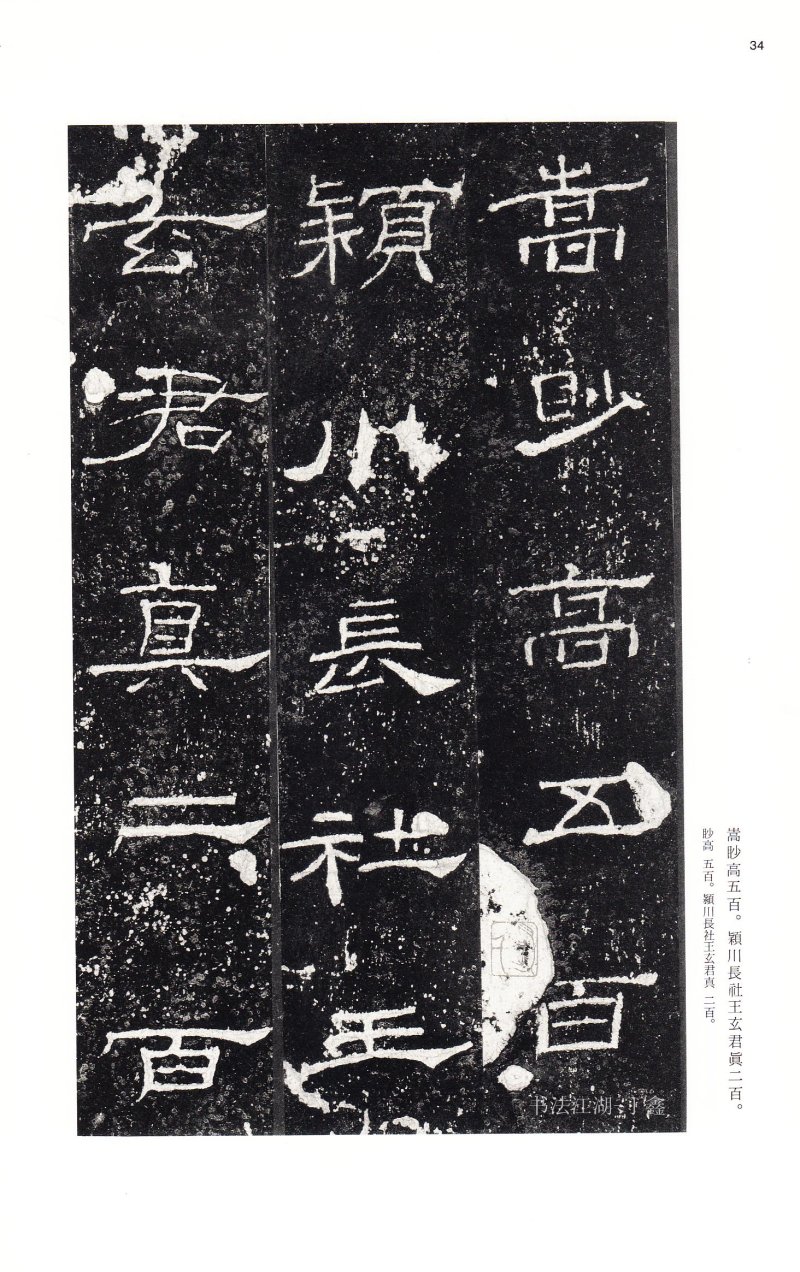 34
嵩眇高五百
穎川長社王
玄君真二百
嵩眇高五百。穎川長社王玄君眞二百。
眇高 五百。潁川長社王玄君真 二百。
书法江湖
鑫